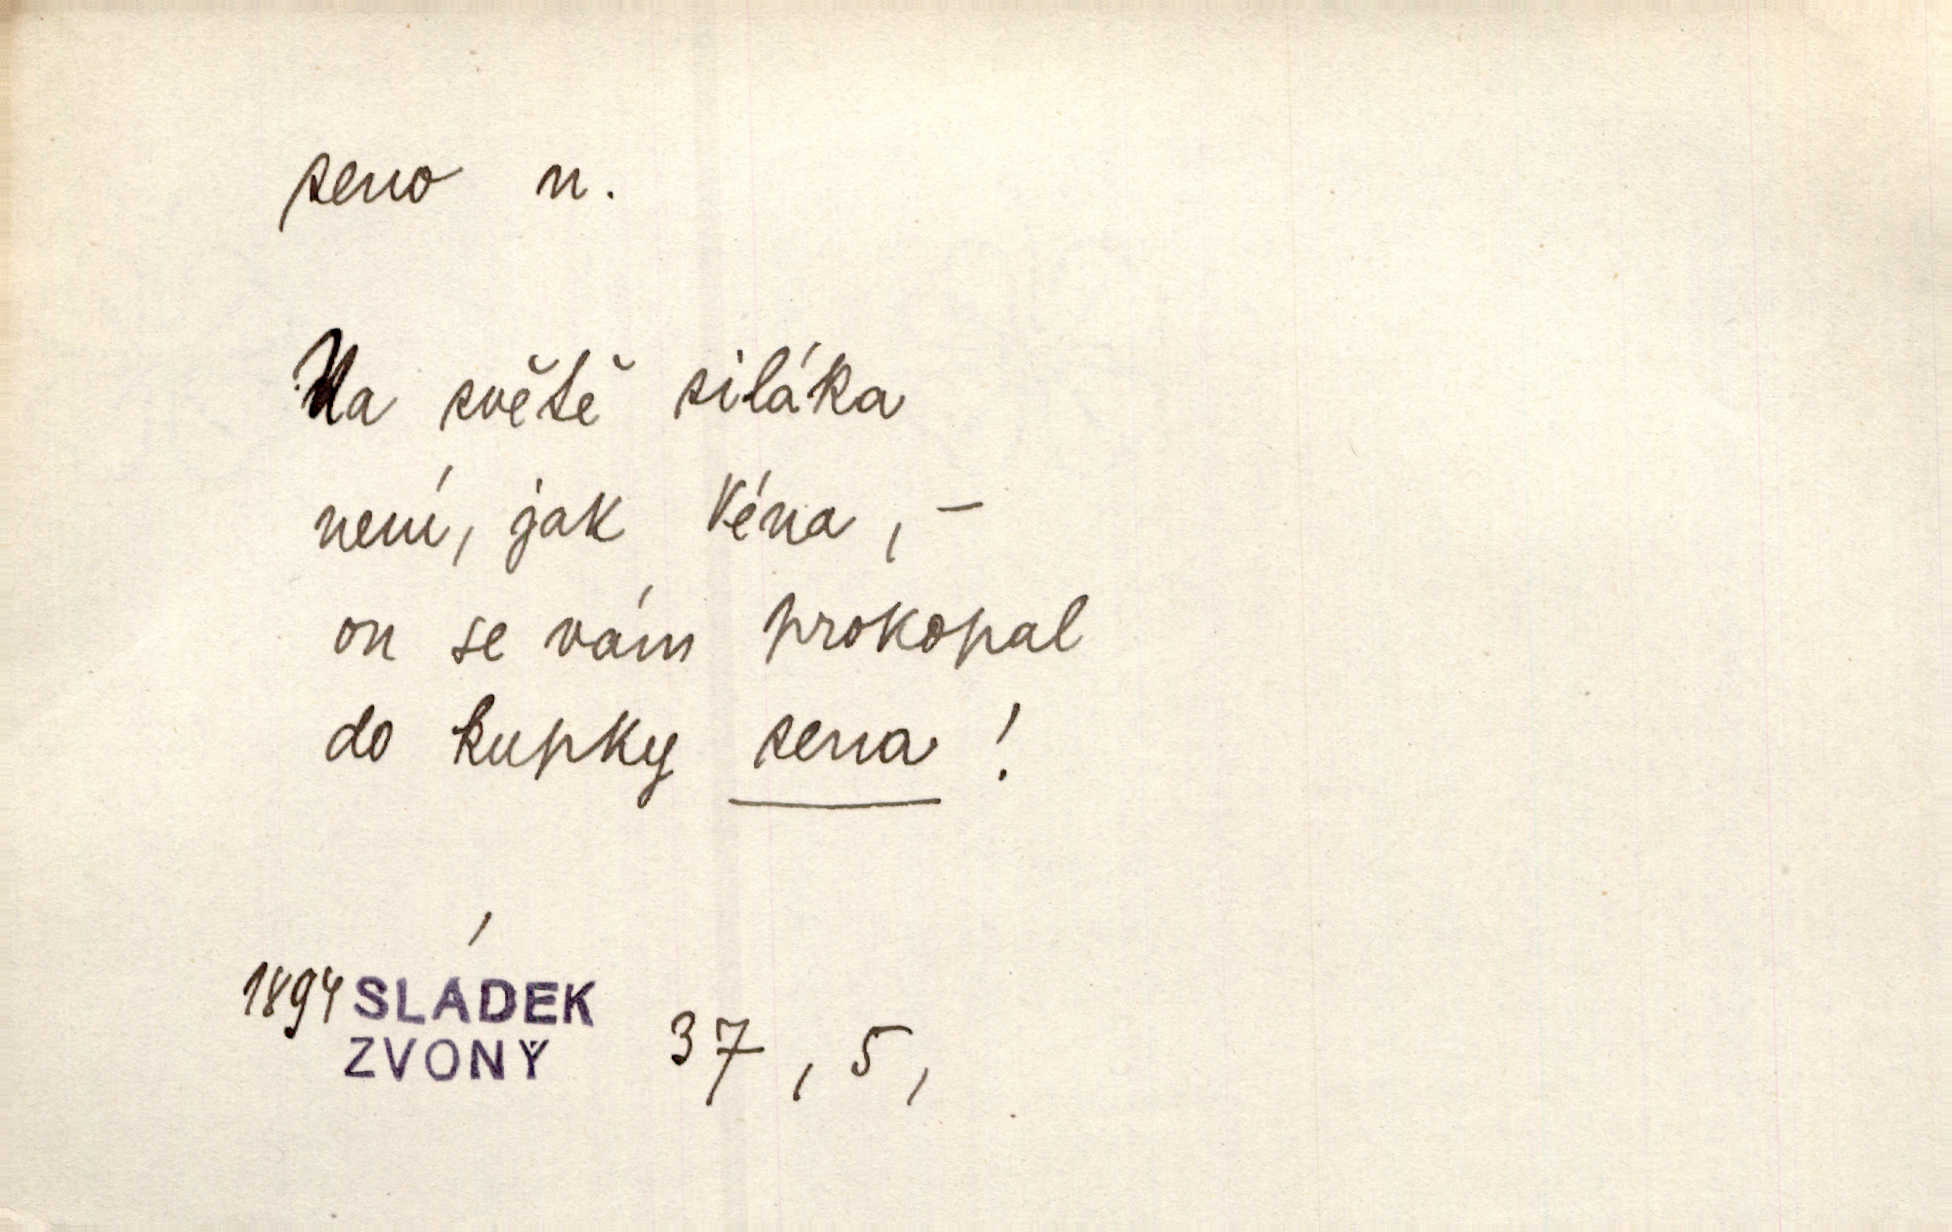 seno n.
Na světě siláka
není, jak Véna, –
on se vám prokopal
do kupky sena !
1894 SLÁDEK
ZVONY 37, 5,